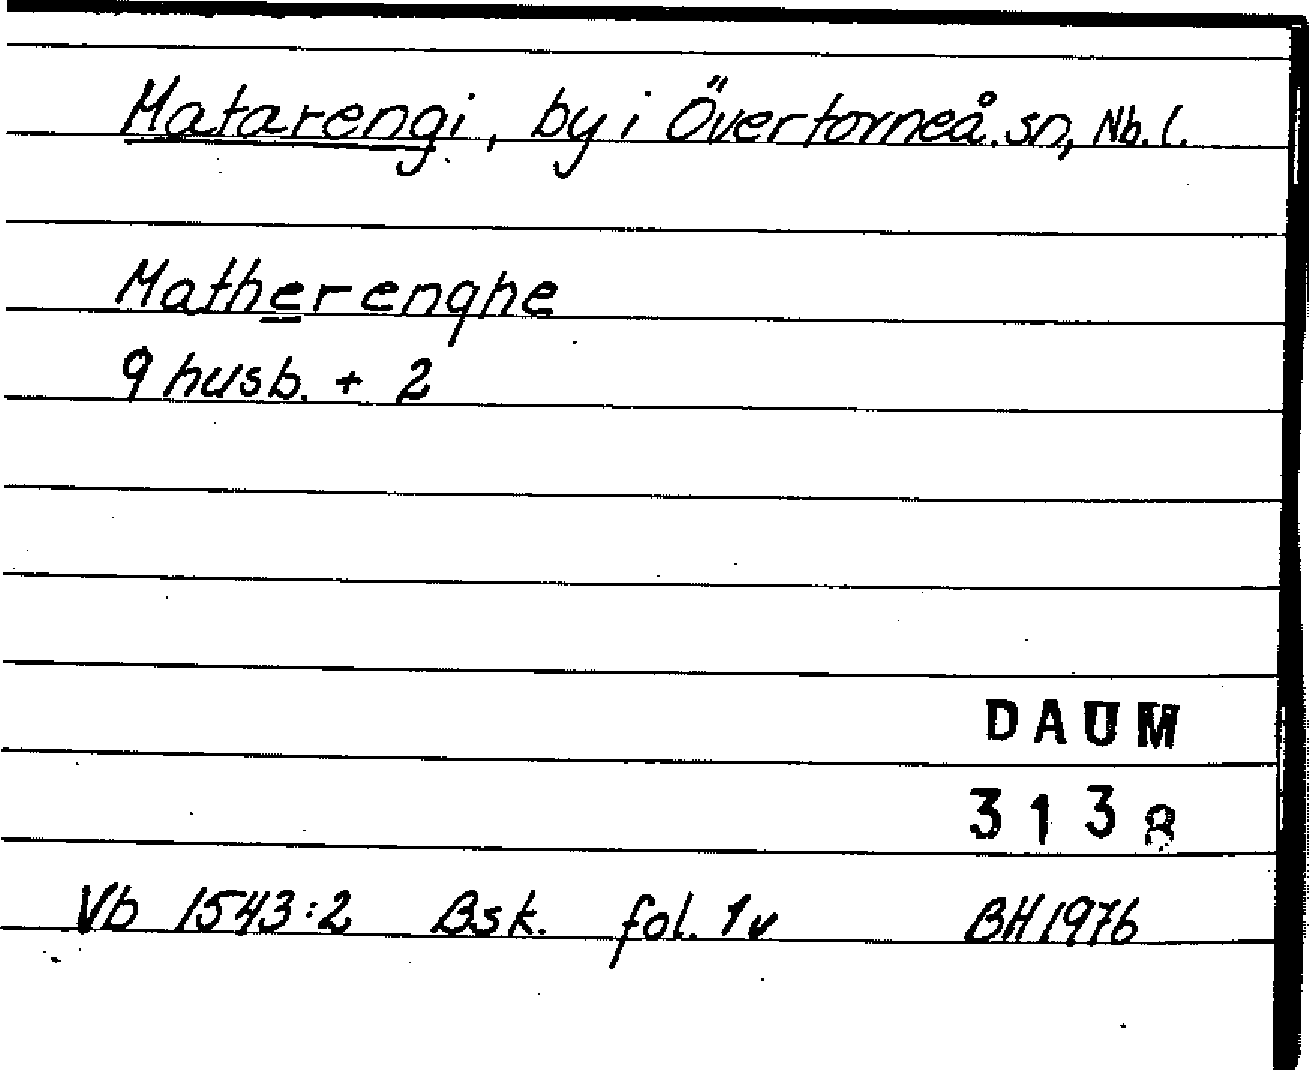 Matarengi, by i Övertorneå. sn, Nb. l.
Matherenghe
9 husb. + 2
DAUM
3138
Vb 1543:2 Bsk. fol. 1v BH 1976